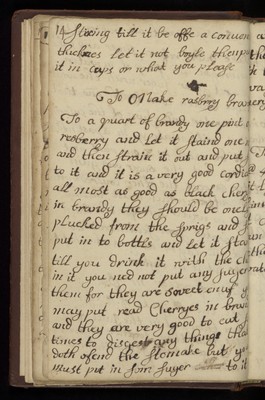 14 Stiring till it be offe a conven
thicknes let it not boyle then put
it in Cups or what you please
To Make rasbry bran
To a quart of brandy one pint
resberry and let it staind one
and then strain it out and put
to it and it is a very good Cordi
all most as good as black Cher
in brandy they should be
plucked from the sprigs and
put in to bottls and let it Sta
till you drink it with the
in it you ned not put any suger
them for they are sweet enuf
may put read Cherryes in bran
and they are very good to eat
times to disgest any things tha
doth ofend the stomake but y
must put in som suger to it